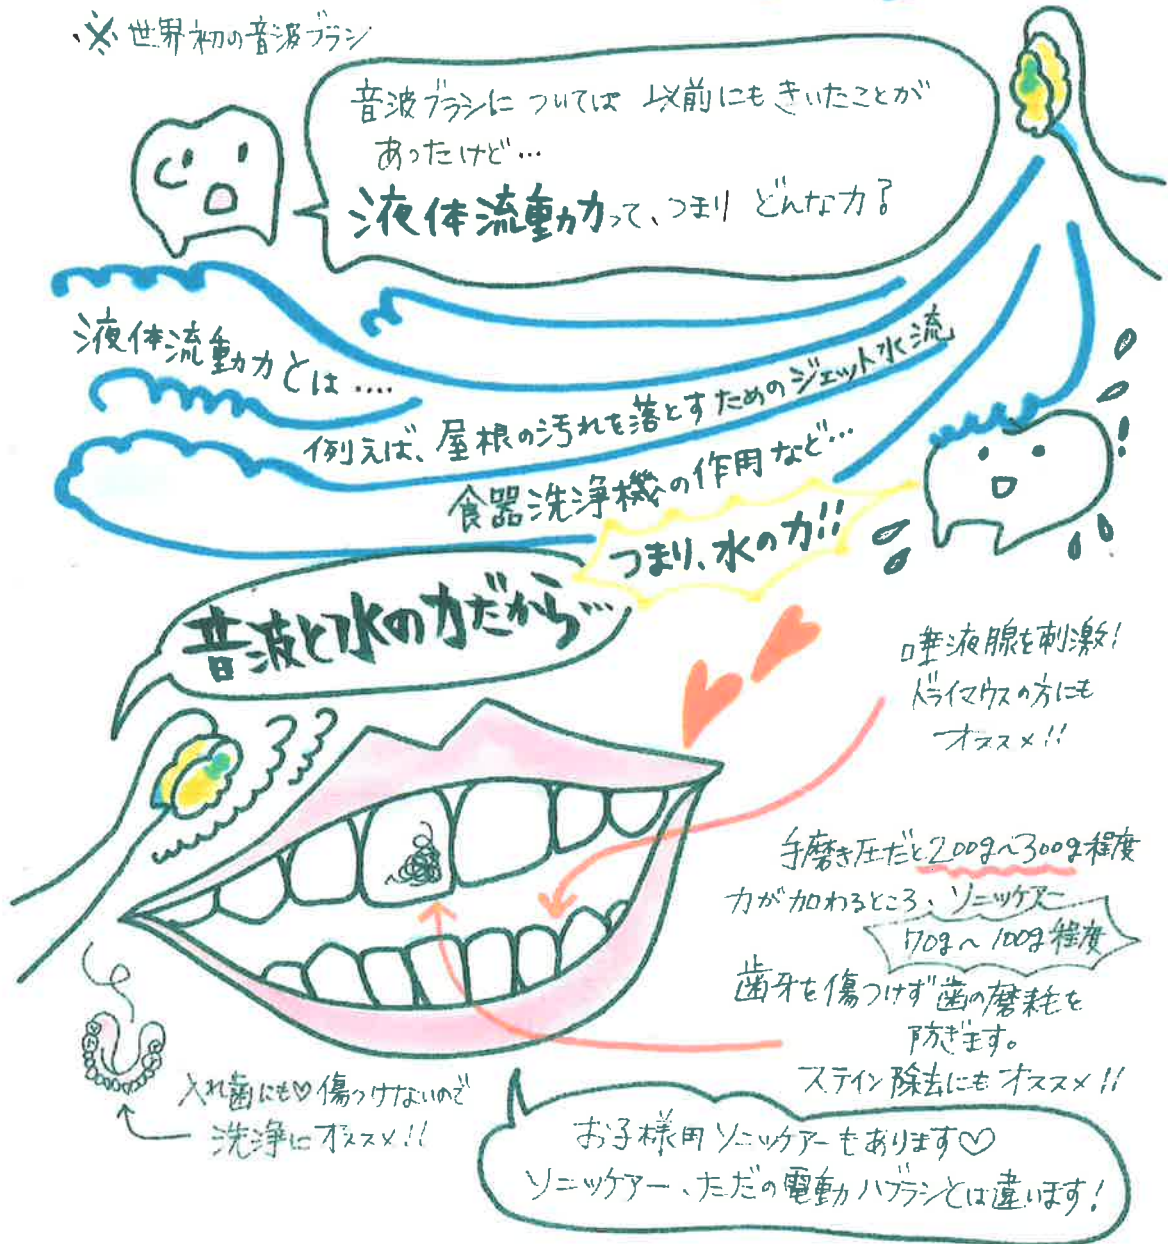 ※世界初の音波ブラシ
音波ブラシについては 以前にもきいたことが
あったけど…
液体流動力って、つまり どんな力?
液体流動力とは….
例えば、屋根の汚れを落とすためのジェット水流
食器洗浄機の作用など…
つまり、水の力!!
音波と水の力だから…
唾液腺を刺激!
ドライマウスの方にも
オススメ!!
手磨き圧だと200g〜300g程度
力が加わるところ、ソニッケアー
70g〜100g程度
歯牙を傷つけず歯の磨耗を
防ぎます。
ステイン除去にもオススメ!!
入れ歯にも♡傷つけないので
洗浄にオススメ!!
お子様用ソニッケアーもあります♡
ソニッケアー、ただの電動ハブラシとは違います!